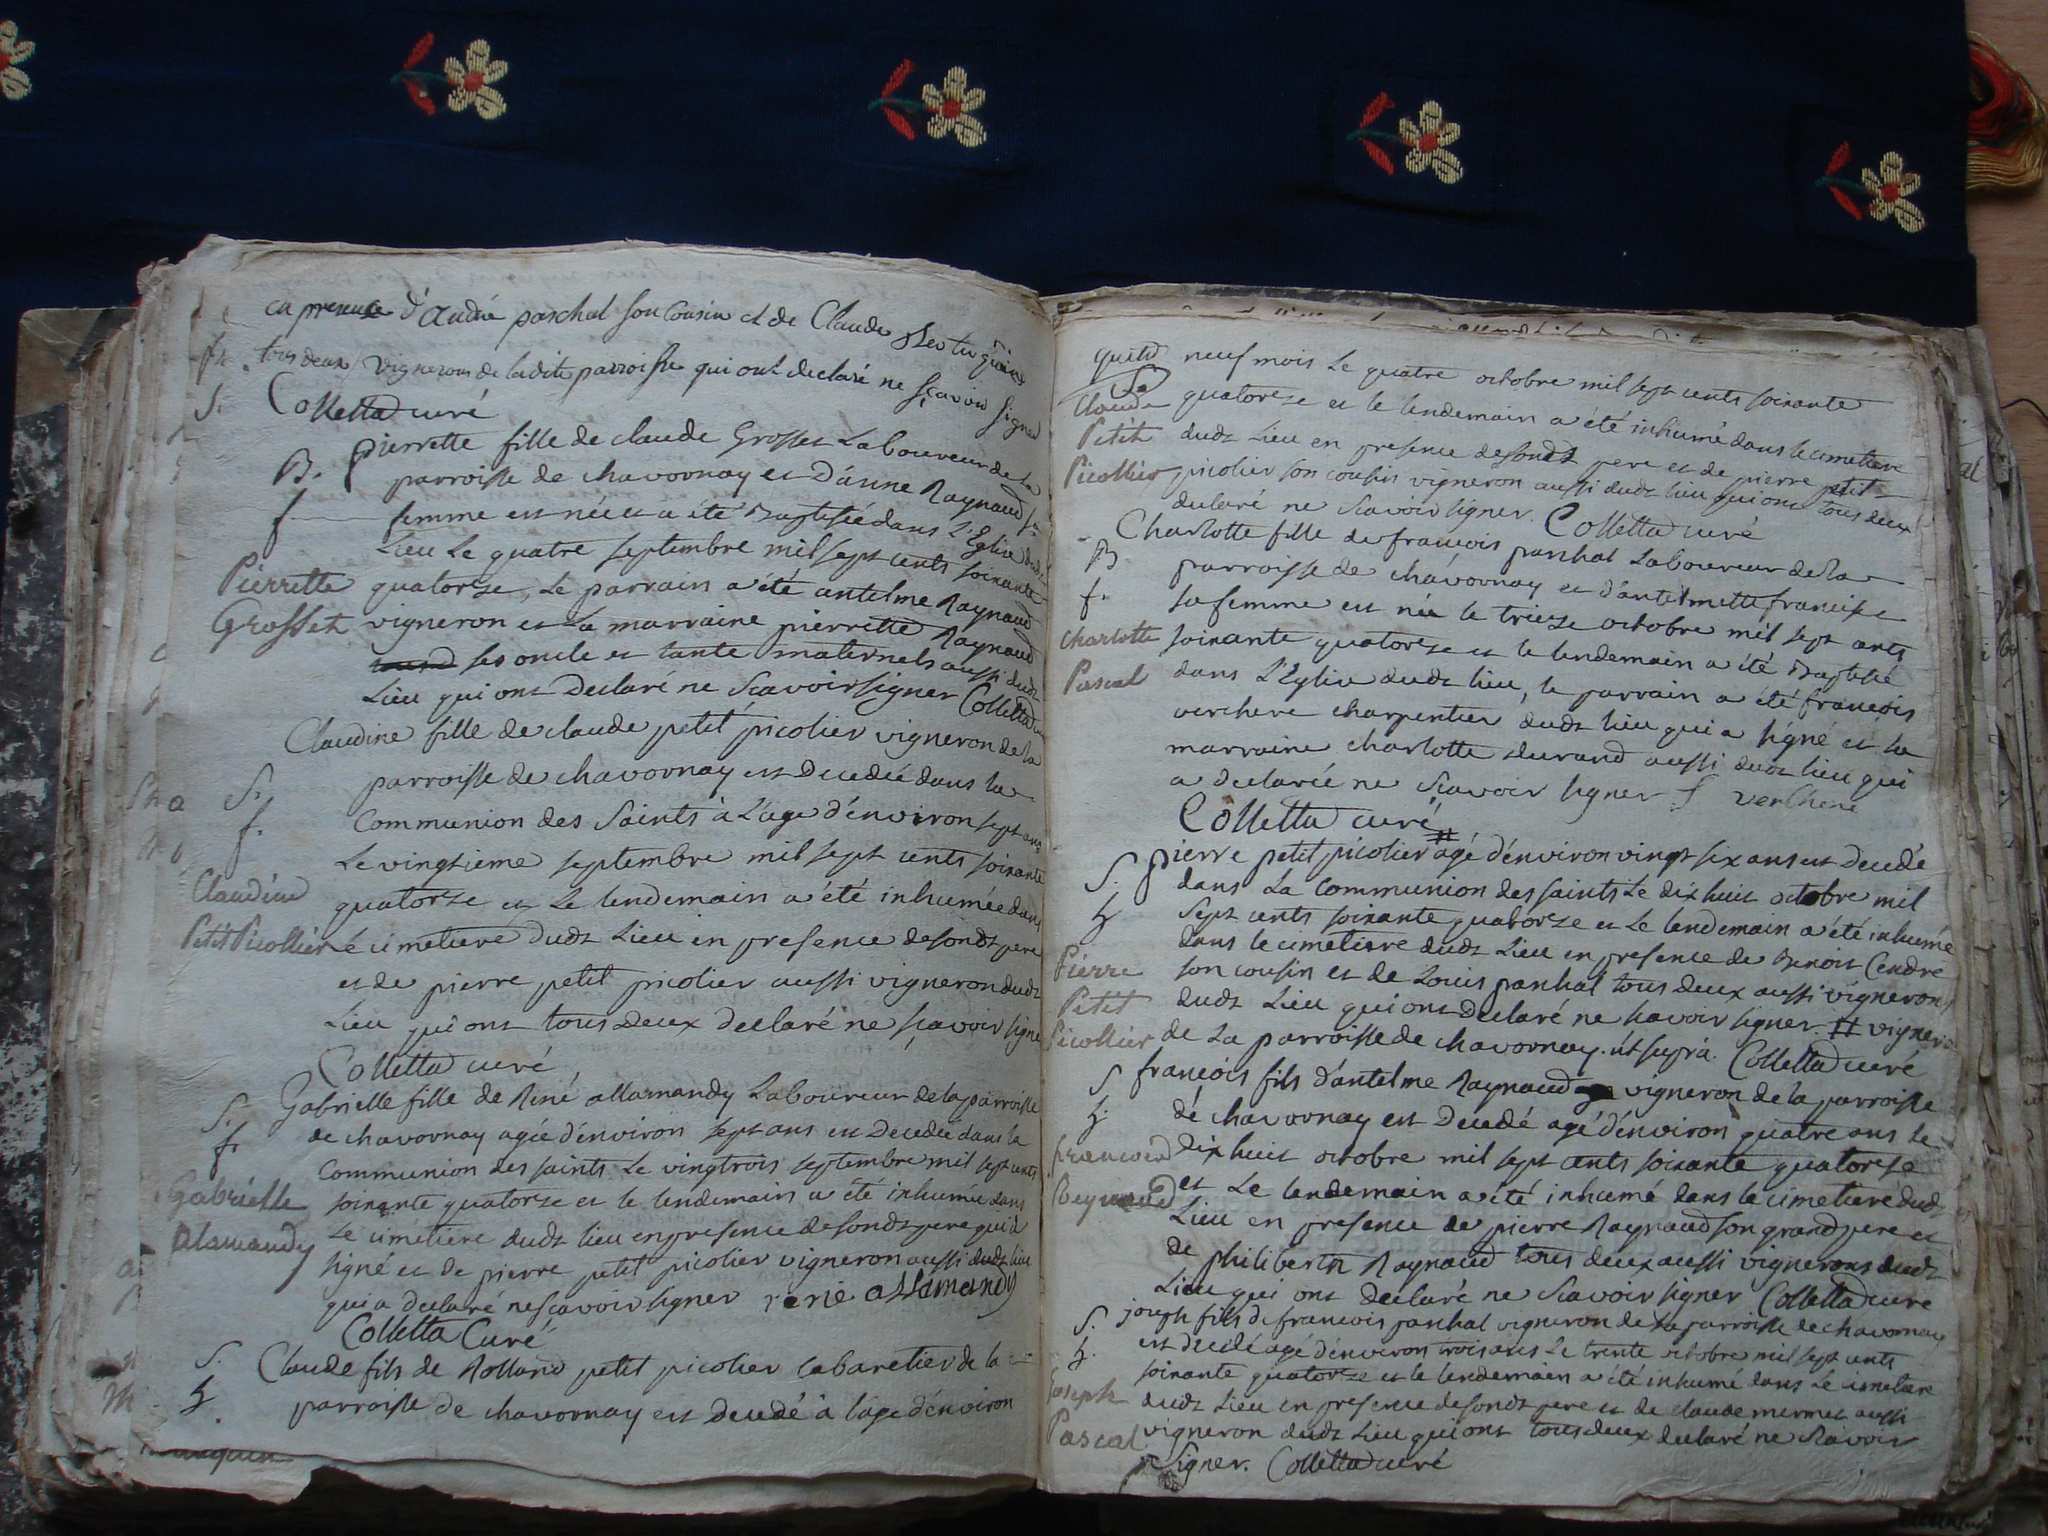 en presence d'andré paschal son cousin et de Claude
tous deux vignerons de ladite parroisse qui ont declaré ne sçavoir signer
Colletta curé
B. pierrette fille de claude Grosset Laboureur de la
f parroisse de chavornay et d'anne Raynaud sa
femme est née et a été Baptisée dans L'Eglise dudt
Lieu Le quatre septembre mil sept cents soixante
Pierrette quatorze, Le parrain a été antelme Raynaud
Grosset vigneron et La marraine pierrette Raynaud
ses oncle et tante maternels aussi dudt
Lieu qui ont Declaré ne Scavoir signer Colletta
Claudine fille de claude petit picolier vigneron de la
parroisse de chavornay est Decedée dans la
S. Communion des Saints à L'age d'environ sept ans
f. Le vingtieme septembre mil sept cents soixante
Claudine quatorze et Le lendemain a été inhumée dans
Petit Picollier le cimetiere dudt Lieu en presence de sondt pere
et de pierre petit picolier aussi vigneron dudt
Lieu qui ont tous Deux declaré ne sçavoir signer
Colletta curé
S. Gabrielle fille de René allamandy Laboureur de la parroisse
f. de chavornay agée d'environ sept ans est Decedée dans la
Communion des saints Le vingtrois septembre mil sept cents
Gabrielle soixante quatorze et le lendemain a été inhumée dans
Alamandy Le cimetiere dudt lieu en presence de sondt pere qui a
signé et de pierre petit picolier vigneron aussi dudt lieu
qui a declaré ne scavoir signer rené allamandy
Colletta Curé
S. Claude fils de Rolland petit picolier cabaretier de la
h. parroisse de chavornay est Decedé à l'age d'environ
neuf mois Le quatre octobre mil sept cents soixante
Claude quatorze et le lendemain a été inhumé dans le cimetiere
Petit dudt Lieu en presence de sondt pere et de pierre petit
Picollier picolier son cousin vigneron aussi dudt lieu qui ont tous deux
declaré ne scavoir signer. Colletta curé
Charlotte fille de francois paschal Laboureur de la
B parroisse de chavornay et d'antelmette francise
f. sa femme est née le trieze octobre mil sept cents
Charlotte soixante quatorze et le lendemain a été Baptisée
Pascal dans l'Eglise dudt lieu, le parrain a été francois
verchere charpentier dudt lieu qui a signé et la
marraine charlotte durand aussi dudt lieu qui
a declarée ne Scavoir signer f verchere
Colletta curé
S. pierre petit picolier # agé d'environ vingt six ans est Decedé
dans La Communion des saints Le dix huit octobre mil
h Sept cents soixante quatorze et Le lendemain a été inhumé
dans le cimetiere dudt Lieu en presence de Benoit Cendre
Pierre son cousin et de Louis paschal tous deux aussi vignerons
Petit dudt Lieu qui ont declaré ne scavoir signer. # vigneron
Picollier de La parroisse de chavornay. ut supra. Colletta curé
S françois fils d'antelme Raynaud vigneron de la parroisse
h. de chavornay est Decedé agé d'environ quatre ans le
francois dix huit octobre mil sept cents soixante quatorze
Reynaud et Le lendemain a été inhumé dans le cimetiere dudt
Lieu en presence de pierre Raynaud son grand pere et
de philibert Raynaud tous deux aussi vignerons dudt
Lieu qui ont declaré ne Scavoir signer Colletta curé
S. joseph fils de francois paschal vigneron de la parroisse de chavornay
h. est decedé agé d'environ trois ans Le trente octobre mil sept cents
soixante quatorze et le lendemain a été inhumé dans Le cimetiere
Joseph dudt Lieu en presence de sondt pere et de claude mermet aussi
Pascal vigneron dudt Lieu qui ont tous deux declaré ne Scavoir
Signer. Colletta curé